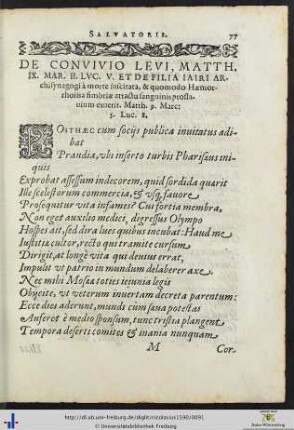 SALVATORIS. 77
DE CONVIVIO LEVI, MATTH.
IX. MAR. II. LVC. V. ET DE FILIA IAIRI AR-
chisynagogi à morte suscitata, & quomodo Hæmor-
rhoissa fimbriæ attactu sanguinis proflu-
uium exierit. Matth. 9. Marc:
5. Luc. 8.
POSTHEC cum socijs publica inuitatus adi-
bat
Prandia, vbi inserto turbis Pharisæus ini-
quis
Exprobat assessum indecorem, quid sordida quærit
Ille scelestorum commercia, & vsq; fauore
Prosequitur vita infames? Cui fortia membra,
Non eget auxilio medici, digressus Olympo
Hospes ait, sed dira lues quibus incubat: Haud me
Iustitiæ cultor, recto qui tramite cursum
Dirigit, at longè vita qui deuius errat,
Impulit vt patrio in mundum delaberer axe.
Nec mihi Mosæa toties ieiunia legis
Obijcite, vt veterum inuertam decreta parentum:
Ecce dies aderunt, mundi cum sæua potestas
Auferet è medio sponsum, tunc tristia plangent
Tempora deserti comites & inania nunquam
M Cor-
http://dl.ub.uni-freiburg.de/diglit/nicolosius1590/0091
© Universitätsbibliothek Freiburg
Baden-Württemberg